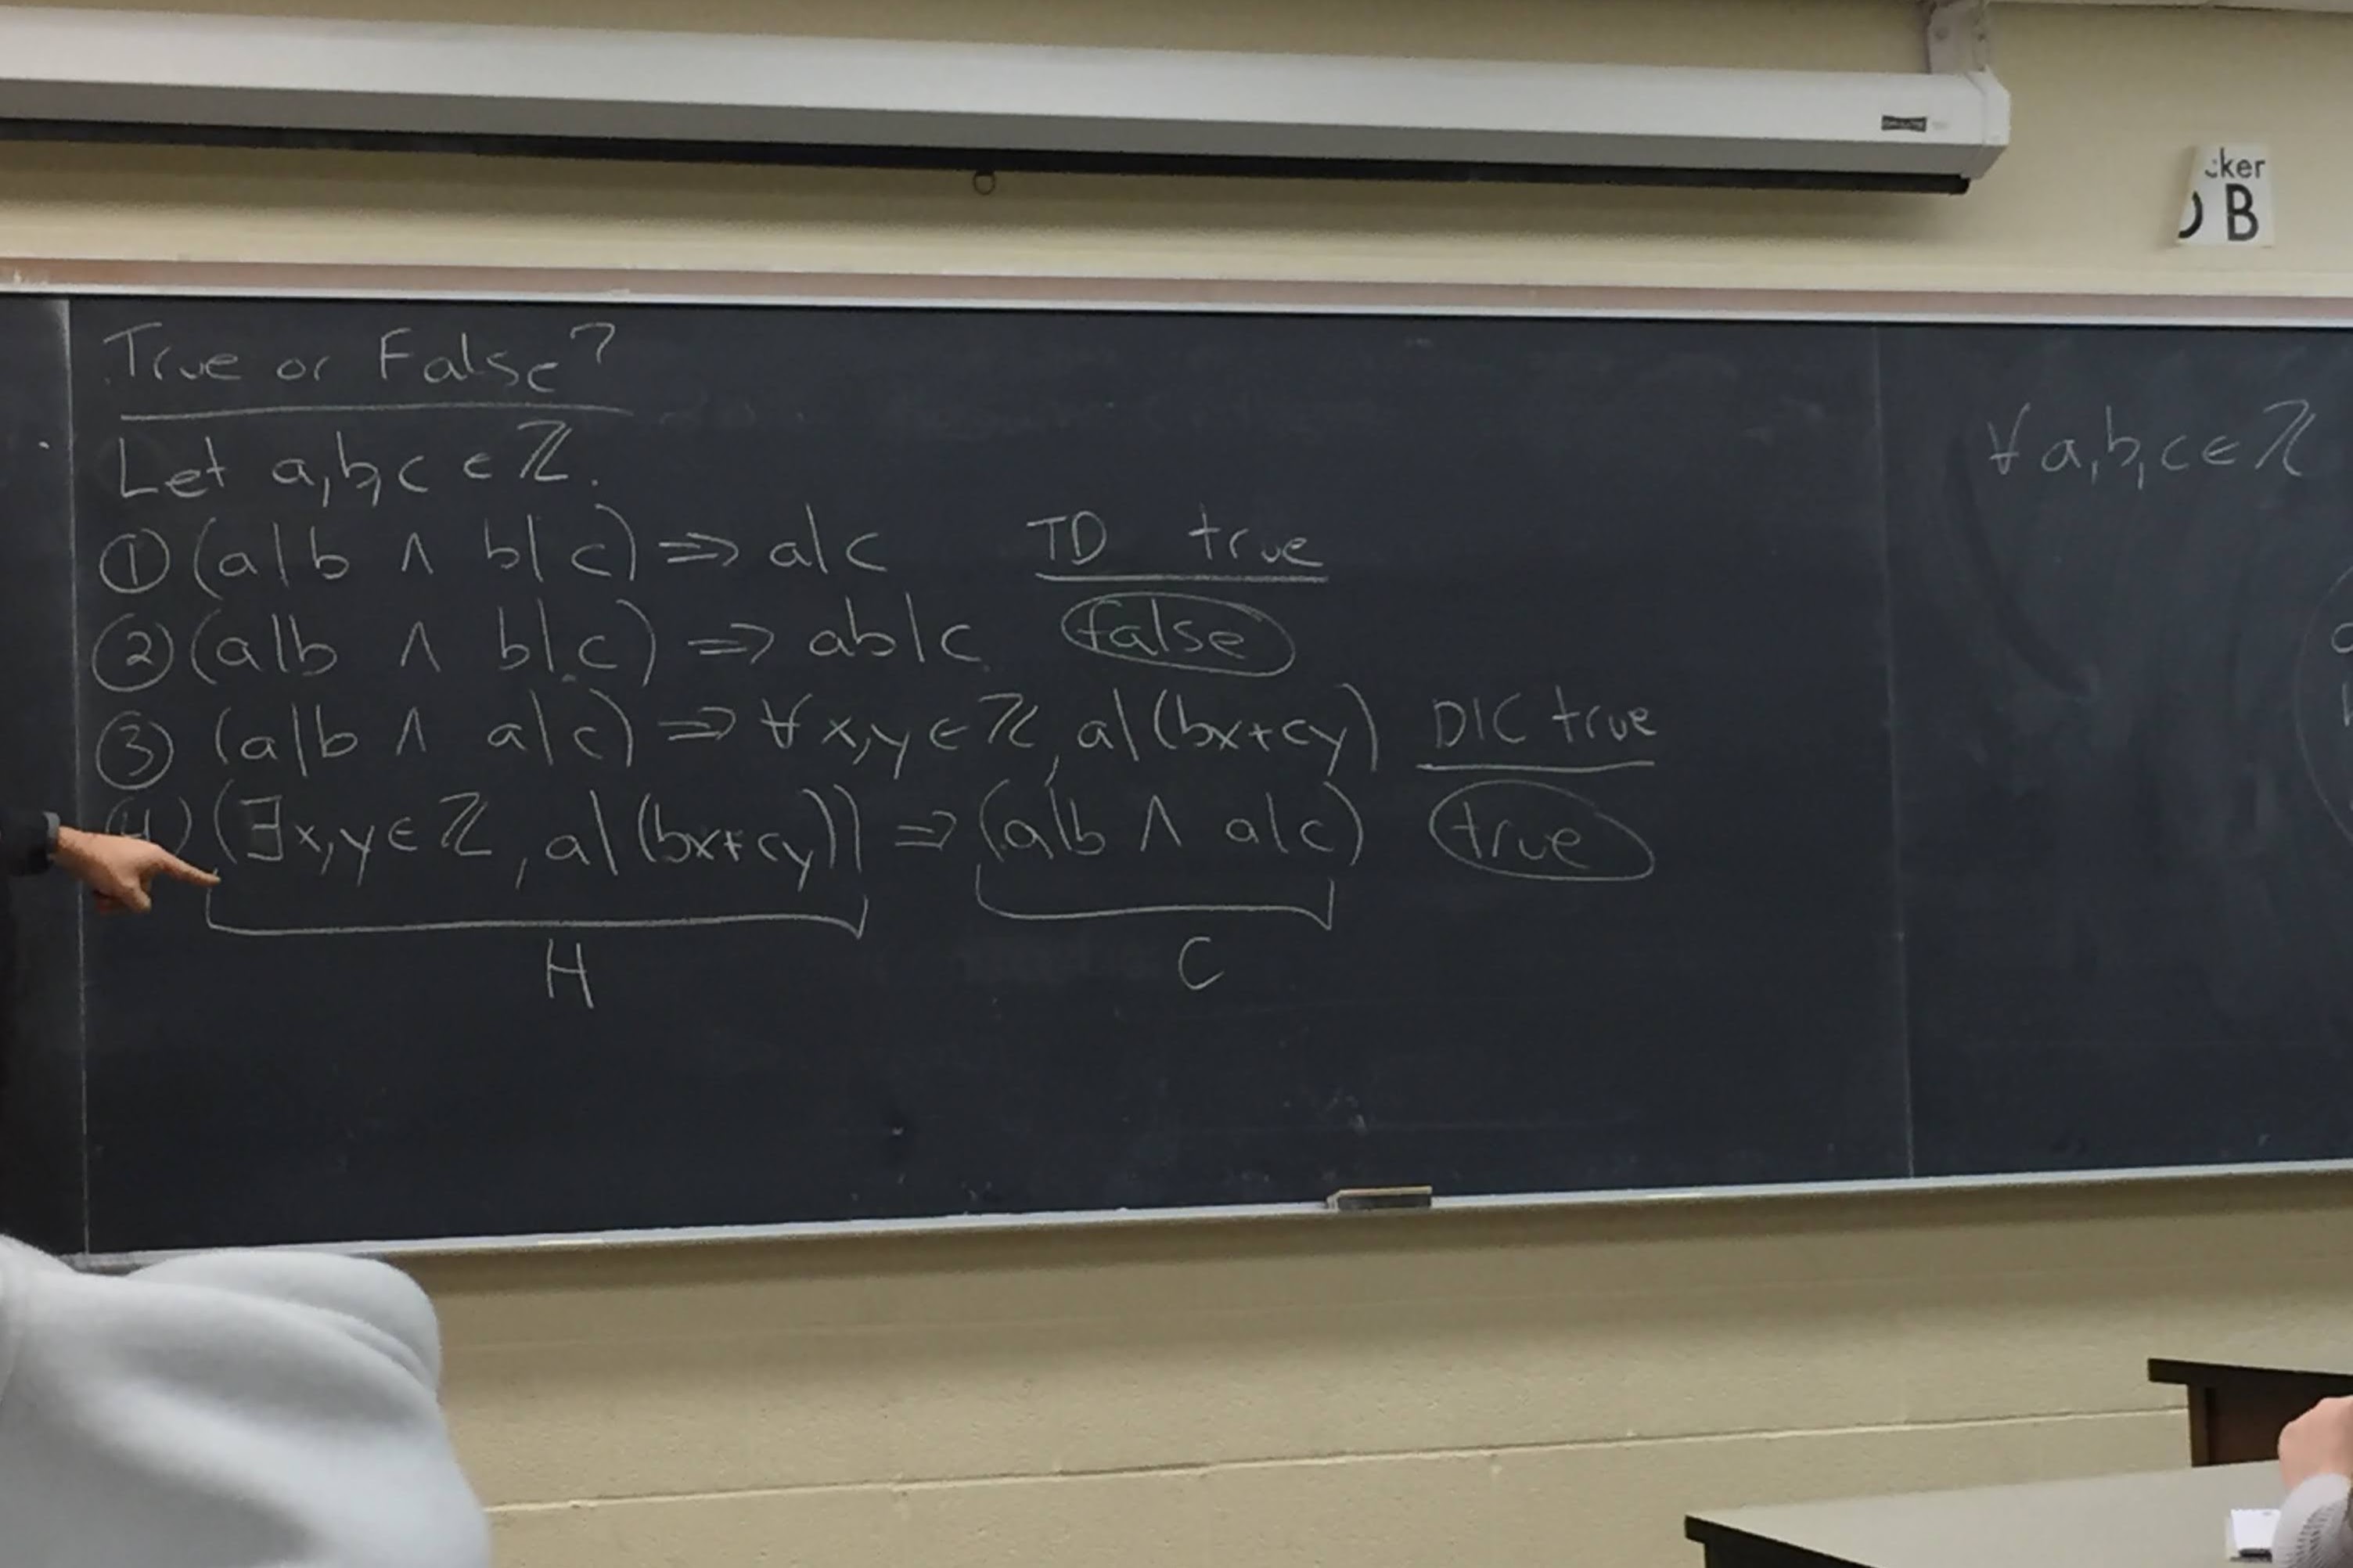 True or False?
Let a,b,c ∈ ℤ.
① (a|b ∧ b|c) ⇒ a|c TD true
② (a|b ∧ b|c) ⇒ ab|c false
③ (a|b ∧ a|c) ⇒ ∀x,y∈ℤ, a|(bx+cy) DIC true
④ (∃x,y∈ℤ, a|(bx+cy)) ⇒ (a|b ∧ a|c) true
H C
∀a,b,c∈ℤ
cker
B